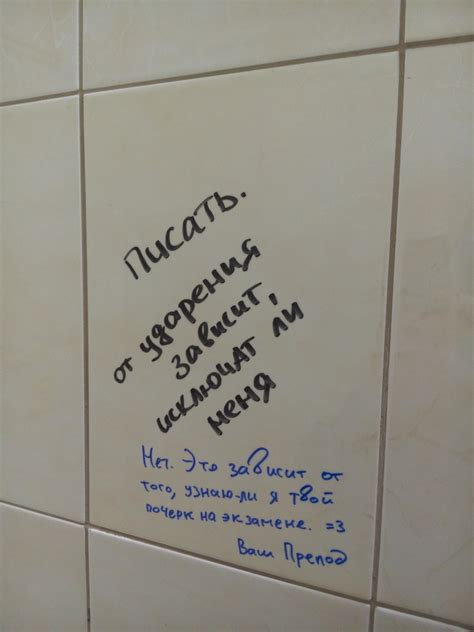 Писать.
от ударения
зависит,
исключат ли
меня
Нет. Это зависит от
того, узнаю-ли я твой
почерк на экзамене. =3
Ваш Препод